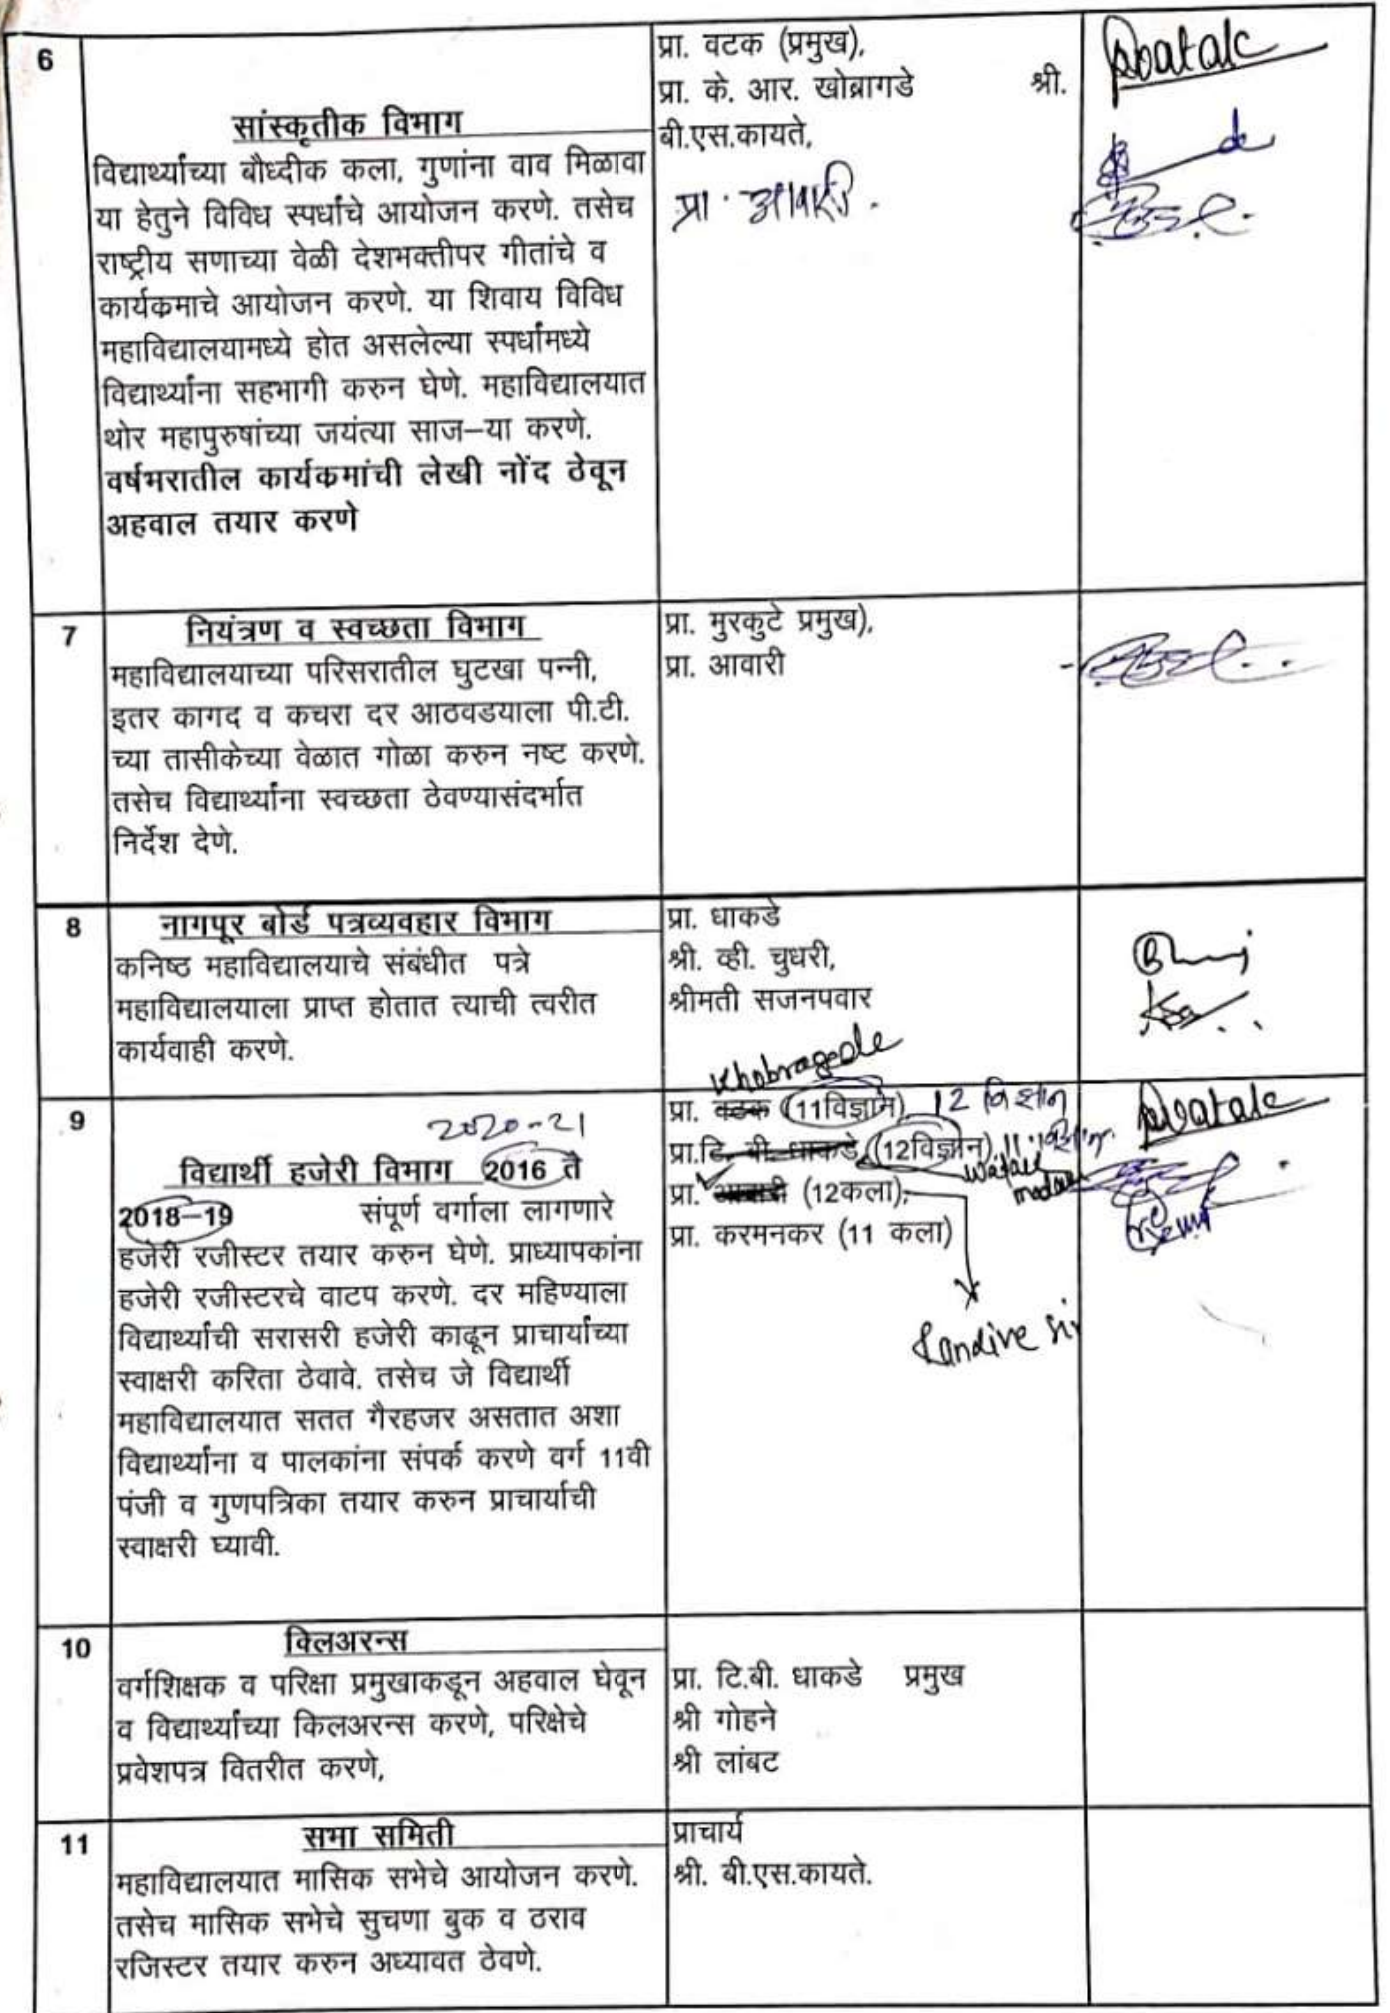 6
प्रा. वटक (प्रमुख),
प्रा. के. आर. खोब्रागडे श्री.
बी.एस.कायते,
प्रा. आवारी.
सांस्कृतीक विभाग
विद्यार्थ्यांच्या बौध्दीक कला, गुणांना वाव मिळावा
या हेतुने विविध स्पर्धांचे आयोजन करणे. तसेच
राष्ट्रीय सणाच्या वेळी देशभक्तीपर गीतांचे व
कार्यकमाचे आयोजन करणे. या शिवाय विविध
महाविद्यालयामध्ये होत असलेल्या स्पर्धांमध्ये
विद्यार्थ्यांना सहभागी करुन घेणे. महाविद्यालयात
थोर महापुरुषांच्या जयंत्या साज–या करणे.
वर्षभरातील कार्यकमांची लेखी नोंद ठेवून
अहवाल तयार करणे
7
नियंत्रण व स्वच्छता विभाग
महाविद्यालयाच्या परिसरातील घुटखा पन्नी,
इतर कागद व कचरा दर आठवडयाला पी.टी.
च्या तासीकेच्या वेळात गोळा करुन नष्ट करणे.
तसेच विद्यार्थ्यांना स्वच्छता ठेवण्यासंदर्भात
निर्देश देणे.
प्रा. मुरकुटे प्रमुख),
प्रा. आवारी
8
नागपूर बोर्ड पत्रव्यवहार विभाग
कनिष्ठ महाविद्यालयाचे संबंधीत पत्रे
महाविद्यालयाला प्राप्त होतात त्याची त्वरीत
कार्यवाही करणे.
प्रा. धाकडे
श्री. व्ही. चुधरी,
श्रीमती सजनपवार
9
2020-21
विद्यार्थी हजेरी विभाग 2016 ते
2018–19 संपूर्ण वर्गाला लागणारे
हजेरी रजीस्टर तयार करुन घेणे. प्राध्यापकांना
हजेरी रजीस्टरचे वाटप करणे. दर महिण्याला
विद्यार्थ्यांची सरासरी हजेरी काढून प्राचार्यांच्या
स्वाक्षरी करिता ठेवावे. तसेच जे विद्यार्थी
महाविद्यालयात सतत गैरहजर असतात अशा
विद्यार्थ्यांना व पालकांना संपर्क करणे वर्ग 11वी
पंजी व गुणपत्रिका तयार करुन प्राचार्याची
स्वाक्षरी घ्यावी.
Khobragade
प्रा. वटक (11विज्ञान), 12 विज्ञान
प्रा.टि. बी. धाकडे, (12विज्ञान), 11 विज्ञान
watak madam
प्रा. आवारी (12कला),
प्रा. करमनकर (11 कला)
10
क्लिअरन्स
वर्गशिक्षक व परिक्षा प्रमुखाकडून अहवाल घेवून
व विद्यार्थ्यांच्या किलअरन्स करणे, परिक्षेचे
प्रवेशपत्र वितरीत करणे,
प्रा. टि.बी. धाकडे प्रमुख
श्री गोहने
श्री लांबट
11
सभा समिती
महाविद्यालयात मासिक सभेचे आयोजन करणे.
तसेच मासिक सभेचे सुचणा बुक व ठराव
रजिस्टर तयार करुन अध्यावत ठेवणे.
प्राचार्य
श्री. बी.एस.कायते.